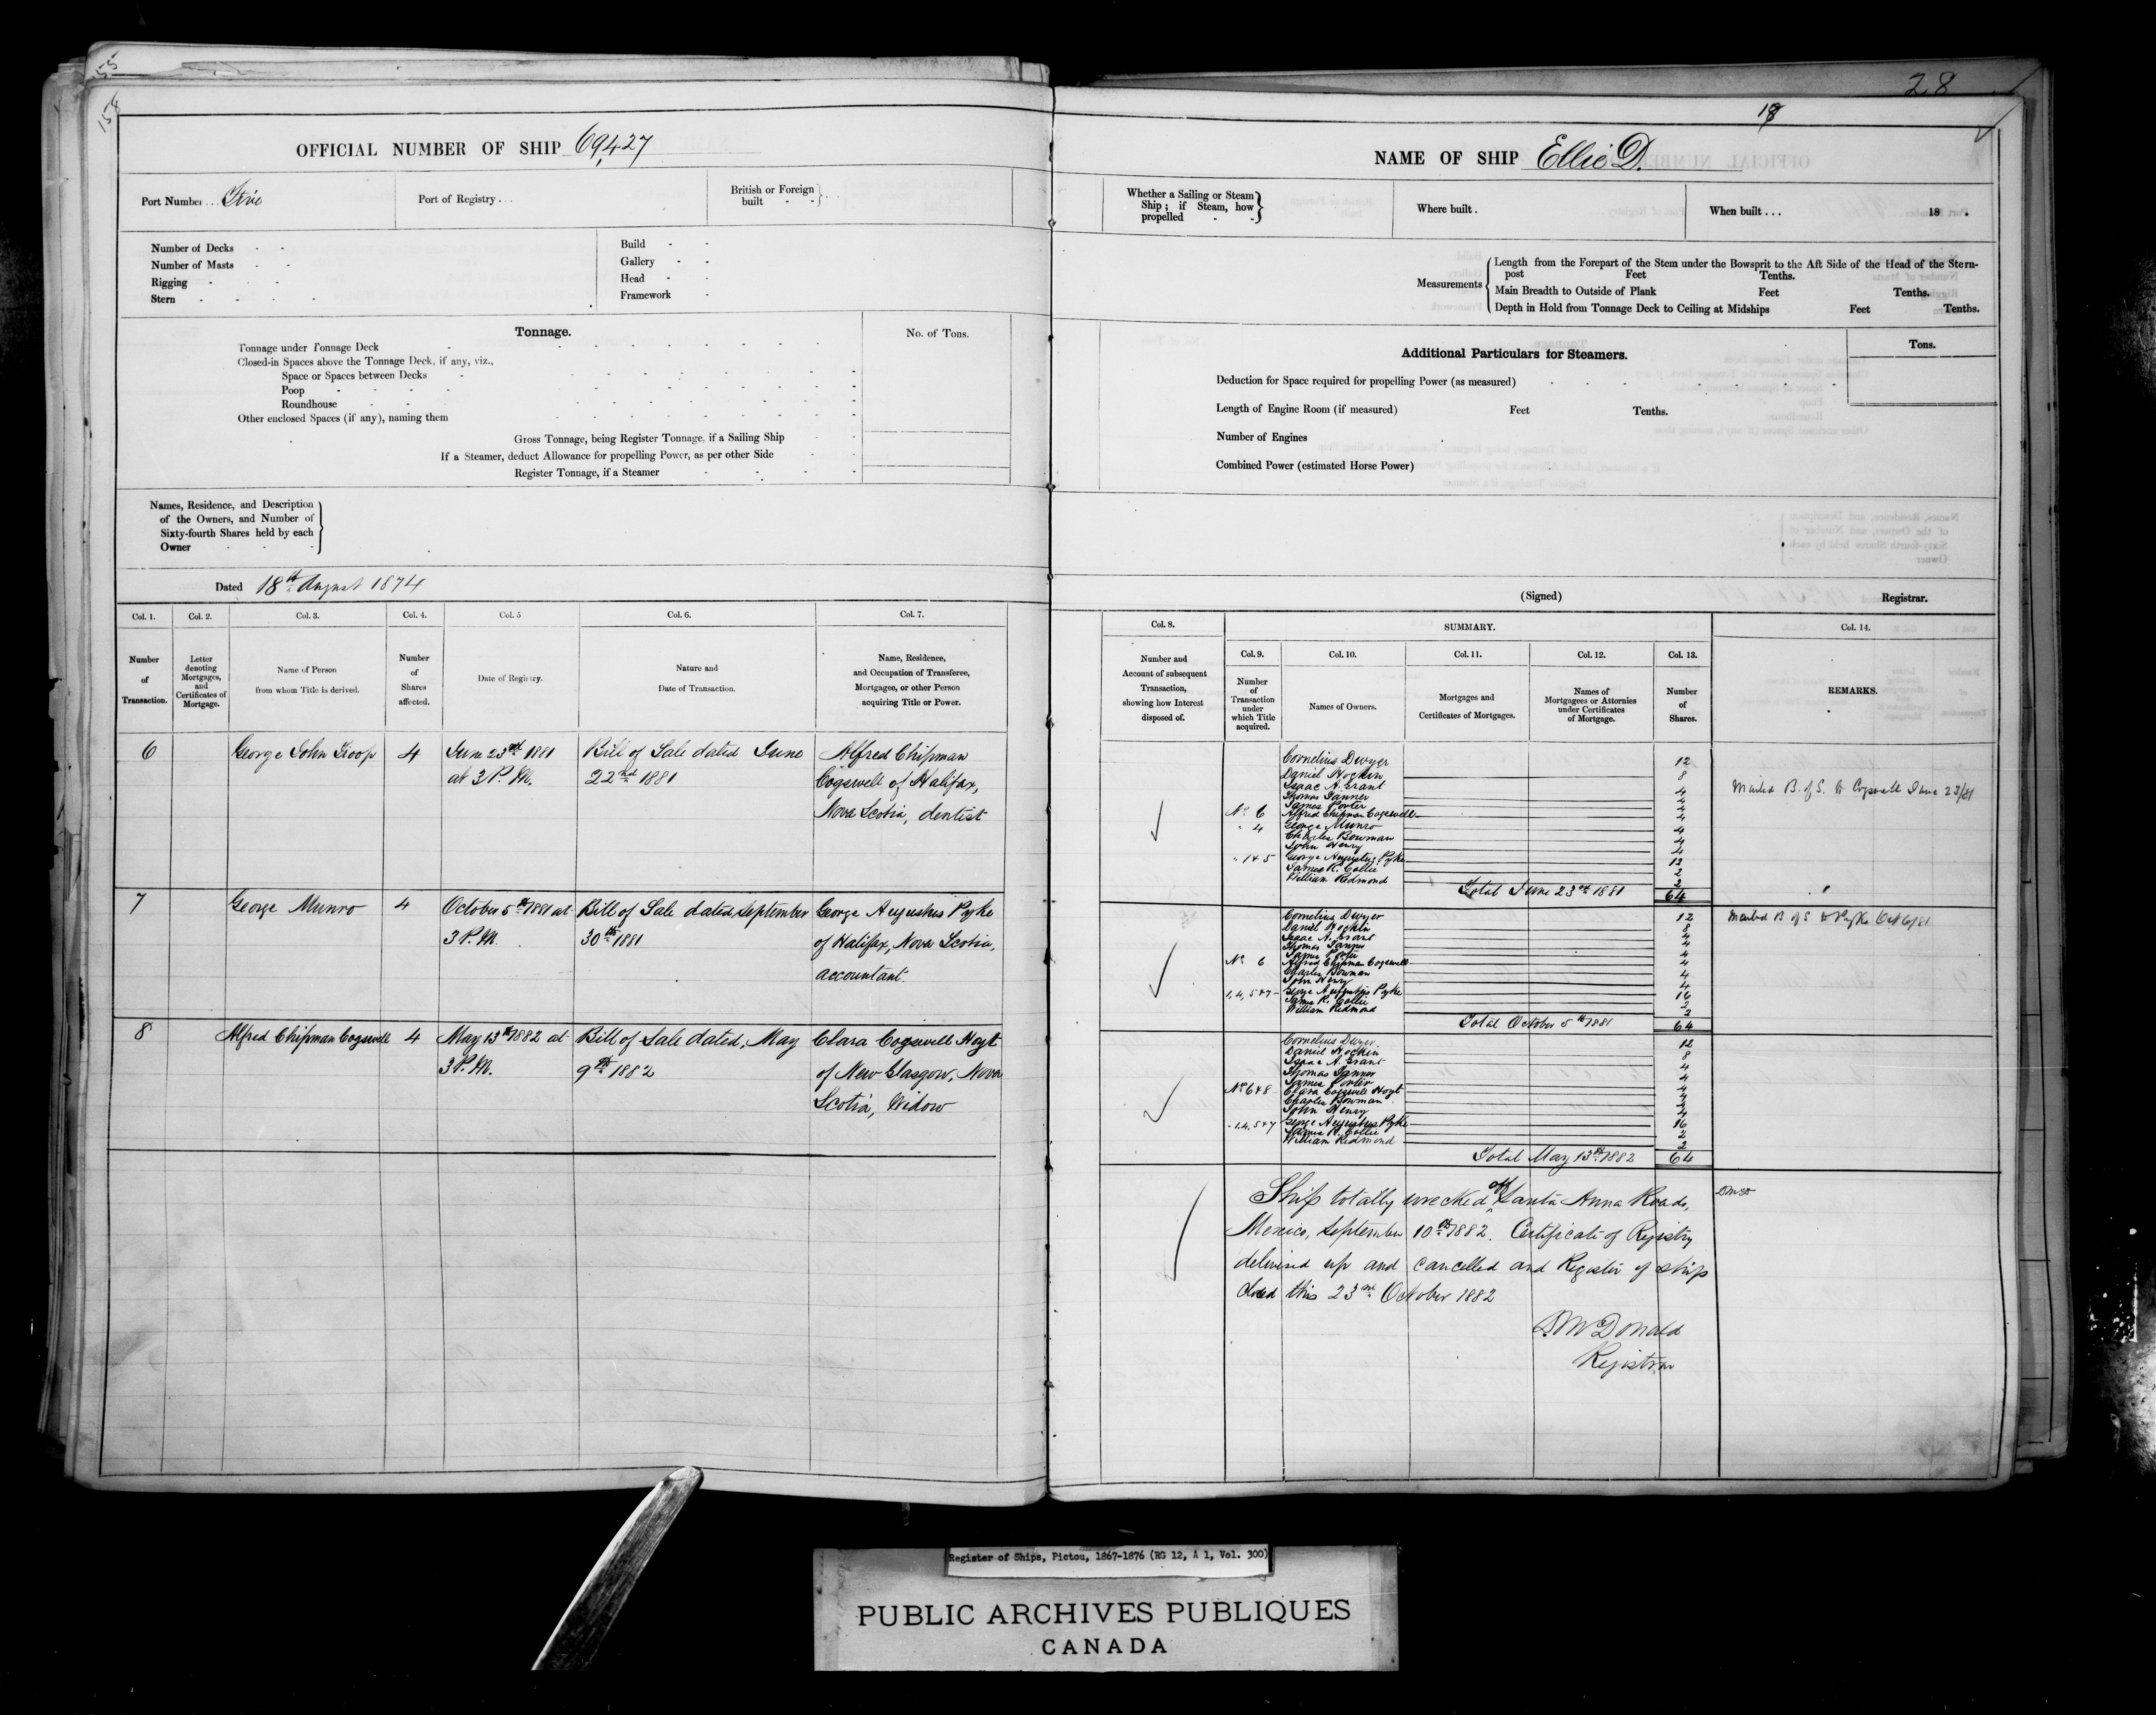 155
158
OFFICIAL NUMBER OF SHIP 69,427
Port Number... Five
Port of Registry...
British or Foreign built
Number of Decks
Number of Masts
Rigging
Stern
Build
Gallery
Head
Framework
Tonnage.
No. of Tons.
Tonnage under Tonnage Deck
Closed-in Spaces above the Tonnage Deck, if any, viz.,
Space or Spaces between Decks
Poop
Roundhouse
Other enclosed Spaces (if any), naming them
Gross Tonnage, being Register Tonnage, if a Sailing Ship
If a Steamer, deduct Allowance for propelling Power, as per other Side
Register Tonnage, if a Steamer
Names, Residence, and Description
of the Owners, and Number of
Sixty-fourth Shares held by each
Owner
Dated 18th August 1874
Col. 1.
Col. 2.
Col. 3.
Col. 4.
Col. 5
Col. 6.
Col. 7.
Number of Transaction.
Letter denoting Mortgages, and Certificates of Mortgage.
Name of Person from whom Title is derived.
Number of Shares affected.
Date of Registry.
Nature and Date of Transaction.
Name, Residence, and Occupation of Transferee, Mortgagee, or other Person acquiring Title or Power.
6 George John Troop 4 June 23rd 1881 Bill of Sale dated June Alfred Chipman
at 3 P.M. 22nd 1881 Cogswell of Halifax,
Nova Scotia, dentist
7 George Munro 4 October 5th 1881 at Bill of Sale dated September George Augustus Pyke
3 P.M. 30th 1881 of Halifax, Nova Scotia,
accountant.
8 Alfred Chipman Cogswell 4 May 13th 1882 at Bill of Sale dated, May Clara Cogswell Hoyt
3 P.M. 9th 1882 of New Glasgow, Nova
Scotia, Widow
28
18
NAME OF SHIP Ellie D.
Whether a Sailing or Steam Ship; if Steam, how propelled
Where built.
When built... 18 .
Measurements
Length from the Forepart of the Stem under the Bowsprit to the Aft Side of the Head of the Stern-
post Feet Tenths.
Main Breadth to Outside of Plank Feet Tenths.
Depth in Hold from Tonnage Deck to Ceiling at Midships Feet Tenths.
Additional Particulars for Steamers.
Tons.
Deduction for Space required for propelling Power (as measured)
Length of Engine Room (if measured) Feet Tenths.
Number of Engines
Combined Power (estimated Horse Power)
(Signed) Registrar.
Col. 8.
SUMMARY.
Col. 14.
Col. 9.
Col. 10.
Col. 11.
Col. 12.
Col. 13.
Number and Account of subsequent Transaction, showing how Interest disposed of.
Number of Transaction under which Title acquired.
Names of Owners.
Mortgages and Certificates of Mortgages.
Names of Mortgagees or Attornies under Certificates of Mortgage.
Number of Shares.
REMARKS.
Cornelius Dwyer 12
Daniel Hockin 8
Isaac A. Grant 4
Thomas Tanner 4
James Porter 4
No. 6 Alfred Chipman Cogswell 4
" 4 George Munro 4
Charles Bowman 4
John Henry 4
" 1 & 5 George Augustus Pyke 12
James R. Collie 2
William Redmond 2
Total June 23rd 1881 64
B. of S. to Cogswell June 23/81
Cornelius Dwyer 12
Daniel Hockin 8
Isaac A. Grant 4
Thomas Tanner 4
James Porter 4
No. 6 Alfred Chipman Cogswell 4
Charles Bowman 4
John Henry 4
1, 4, 5 & 7 George Augustus Pyke 16
James R. Collie 2
William Redmond 2
Total October 5th 1881 64
B. of S. to Pyke Oct 6/81
Cornelius Dwyer 12
Daniel Hockin 8
Isaac A. Grant 4
Thomas Tanner 4
James Porter 4
No. 6 & 8 Clara Cogswell Hoyt 4
Charles Bowman 4
John Henry 4
" 1, 4, 5 & 7 George Augustus Pyke 16
James R. Collie 2
William Redmond 2
Total May 13th 1882 64
Ship totally wrecked off Santa Anna Roads,
Mexico, September 10th 1882. Certificate of Registry
delivered up and cancelled and Register of Ship
closed this 23rd October 1882
DMcDonald
Registrar
Register of Ships, Pictou, 1867-1876 (RG 12, A 1, Vol. 300)
PUBLIC ARCHIVES PUBLIQUES
CANADA